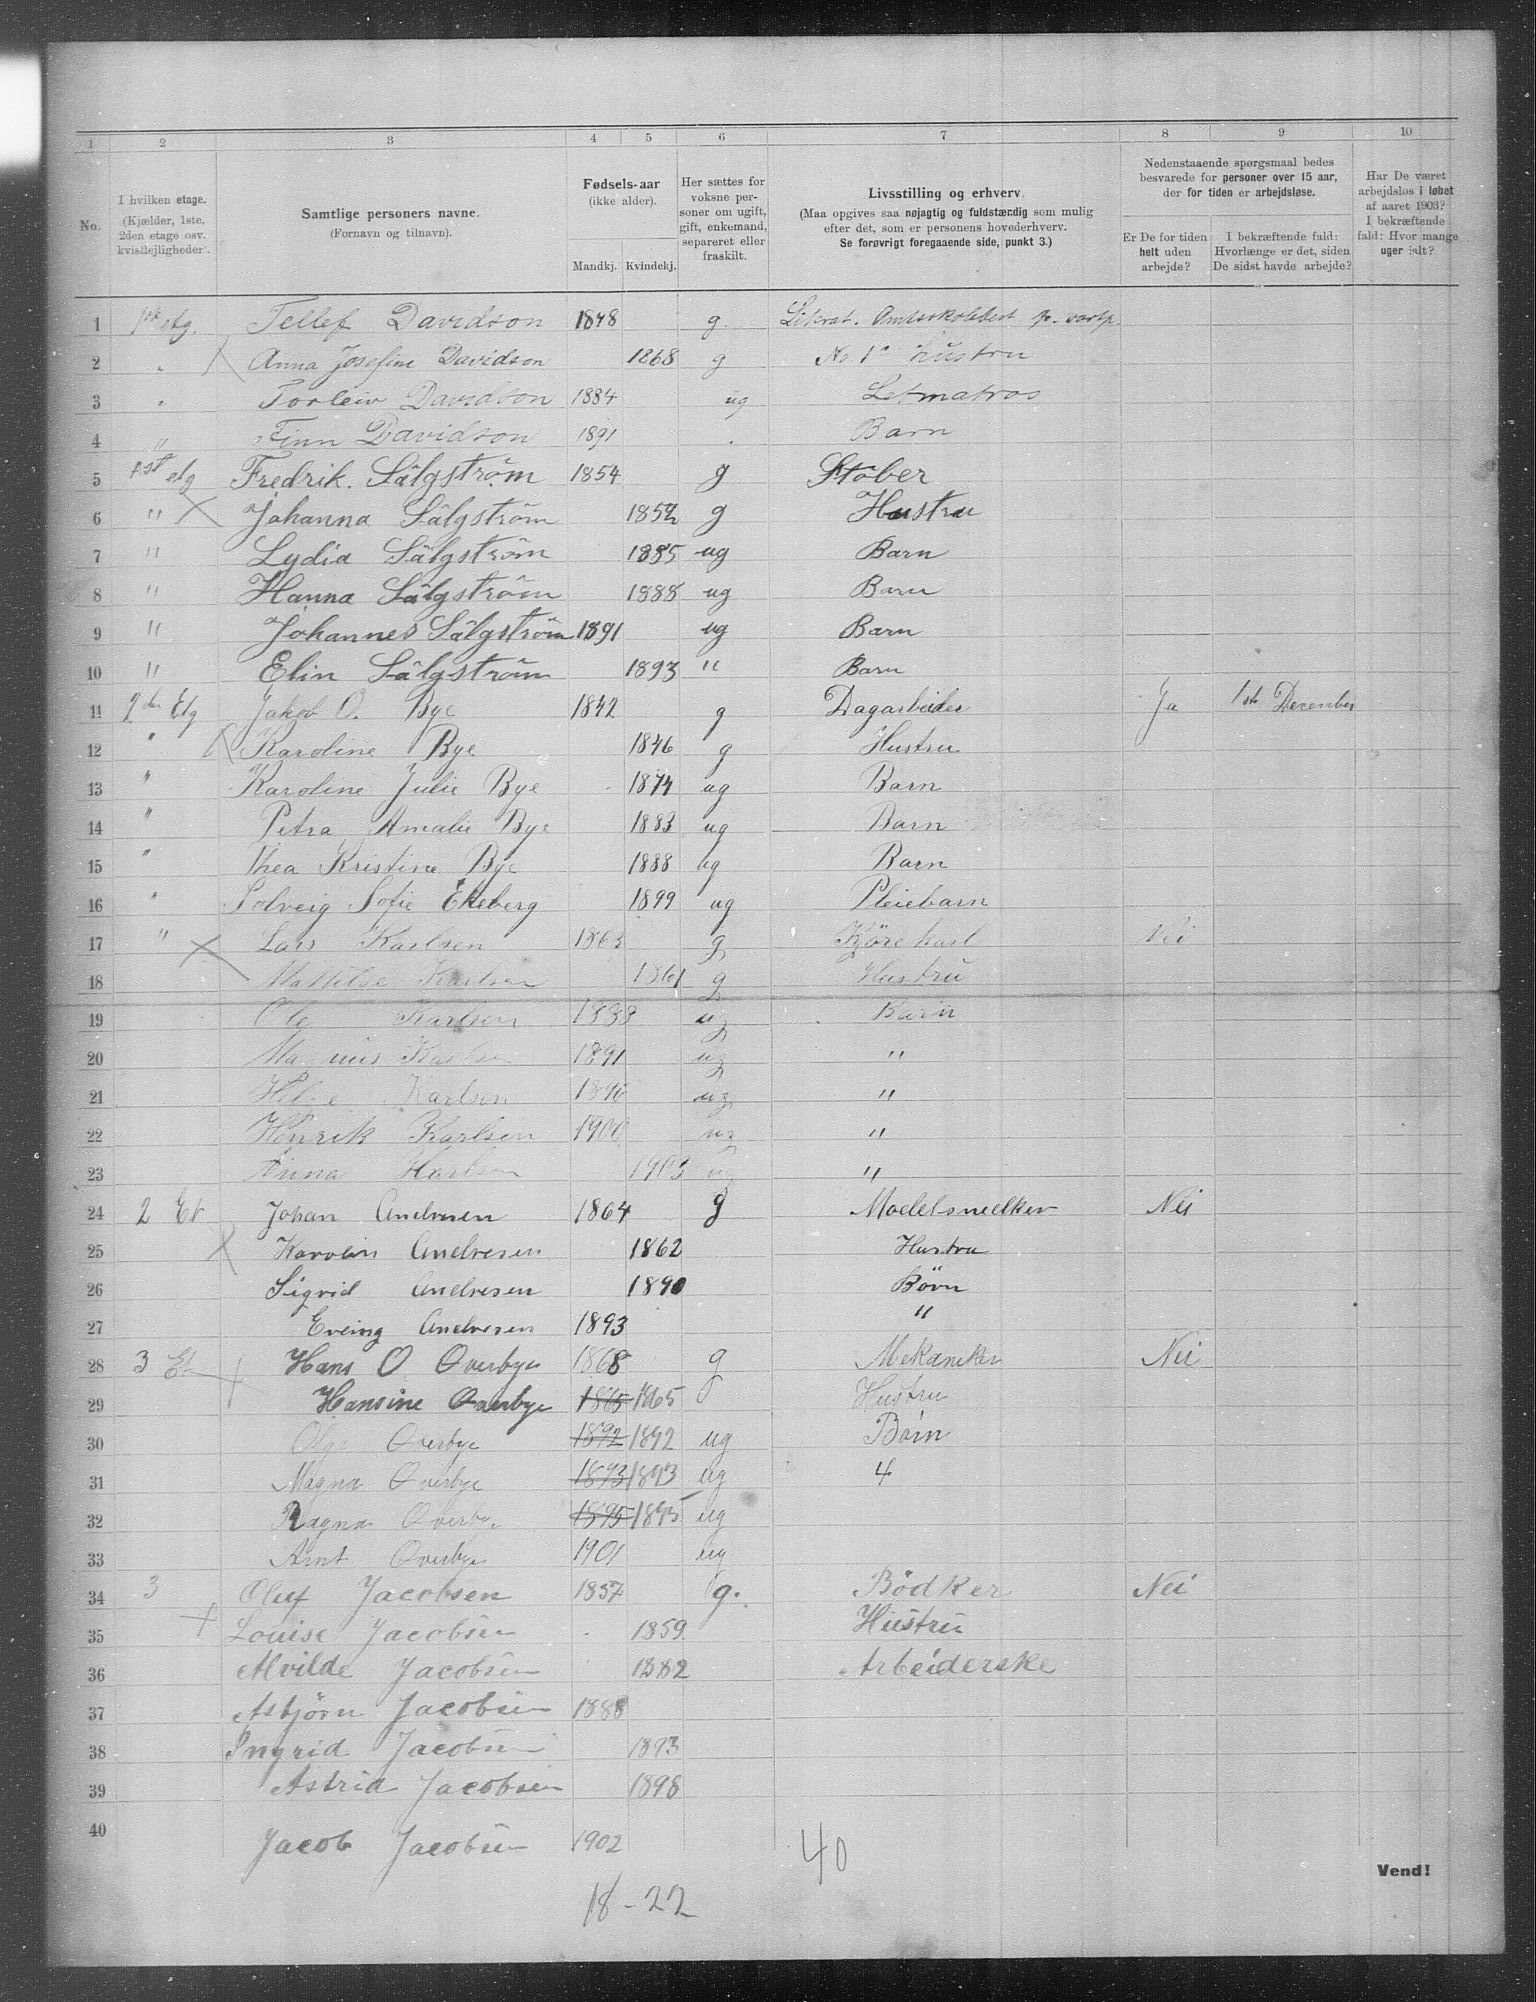 1 2 3 4 5 6 7 8 9 10
No.
I hvilken etage.
(Kjælder, 1ste,
2den etage osv.
kvistlejligheder).
Samtlige personers navne.
(Fornavn og tilnavn).
Fødsels-aar
(ikke alder).
Mandkj. Kvindekj.
Her sættes for
voksne per-
soner om ugift,
gift, enkemand,
separeret eller
fraskilt.
Livsstilling og erhverv.
(Maa opgives saa nøjagtig og fuldstændig som mulig
efter det, som er personens hovederhverv.
Se forøvrigt foregaaende side, punkt 3.)
Nedenstaaende spørgsmaal bedes
besvarede for personer over 15 aar,
der for tiden er arbejdsløse.
Er De for tiden
helt uden
arbejde?
I bekræftende fald:
Hvorlænge er det, siden
De sidst havde arbejde?
Har De været
arbejdsløs i løbet
af aaret 1903?
I bekræftende
fald: Hvor mange
uger ialt?
1 1ste etg. Tellef Davidson 1848 g.
2 " Anna Josefine Davidson 1868 g No. 1s hustru
3 " Torleiv Davidson 1884 ug Letmatros
4 " Finn Davidson 1891 . Barn
5 1ste etg Fredrik. Sälgström 1854 g Støber
6 " Johanna Sälgström 1852 g Hustru
7 " Lydia Sälgström 1885 ug Barn
8 " Hanna Sälgström 1888 ug Barn
9 " Johannes Sälgström 1891 ug Barn
10 " Elin Sälgström 1893 " Barn
11 2den Etg Jakob O. Bye 1842 g Dagarbeider Ja 1ste December
12 " Karoline Bye 1846 g Hustru
13 " Karoline Julie Bye 1874 ug Barn
14 " Petra Amalie Bye 1883 ug Barn
15 " Thea Kristine Bye 1888 ug Barn
16 " Solveig Sofie Ekeberg 1899 ug Pleiebarn
17 " Lars Karlsen 1863 g Kjörekarl Nei
18 Mathilde Karlsen 1861 g Hustru
19 Ole Karlsen 1888 ug Barn
20 Magnus Karlsen 1891 ug "
21 Karlsen ug "
22 Henrik Karlsen 1900 ug "
23 Anna Karlsen 1903 ug "
24 2 Et Johan Andresen 1864 g Modelsnedker Nei
25 Karolin Andresen 1862 Hustru
26 Sigrid Andresen 1890 Börn
27 Eveing Andresen 1893 "
28 3 Et Hans O Overbye 1868 g Mekaniker Nei
29 Hansine Overbye 1865 1865 g Hustru
30 Olga Overbye 1892 1892 ug Börn
31 Magna Overbye 1893 1893 ug "
32 Ragna Overbye 1895 1895 ug
33 Arnt Overbye 1901 ug
34 3 Oluf Jacobsen 1857 g. Bödker Nei
35 Louise Jacobsen 1859 Hustru
36 Alvilde Jacobsen 1882 Arbeiderske
37 Asbjörn Jacobsen 1888
38 Ingrid Jacobsen 1893
39 Astrid Jacobsen 1898
40 Jacob Jacobsen 1902
40
18-22
Vend!